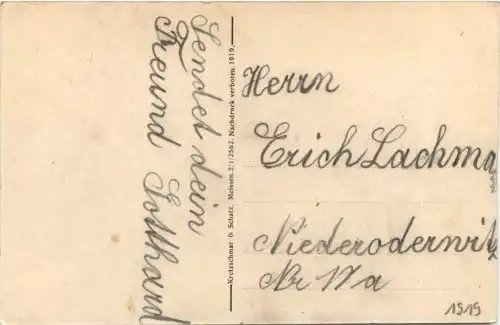 Sendet dein
Freund Gotthard
Kretzschmar & Schatz, Meissen. 2/1/2562. Nachdruck verboten. 1919.
Herrn
Erich Lachma
Niederoderwitz
Nr 17a
1919